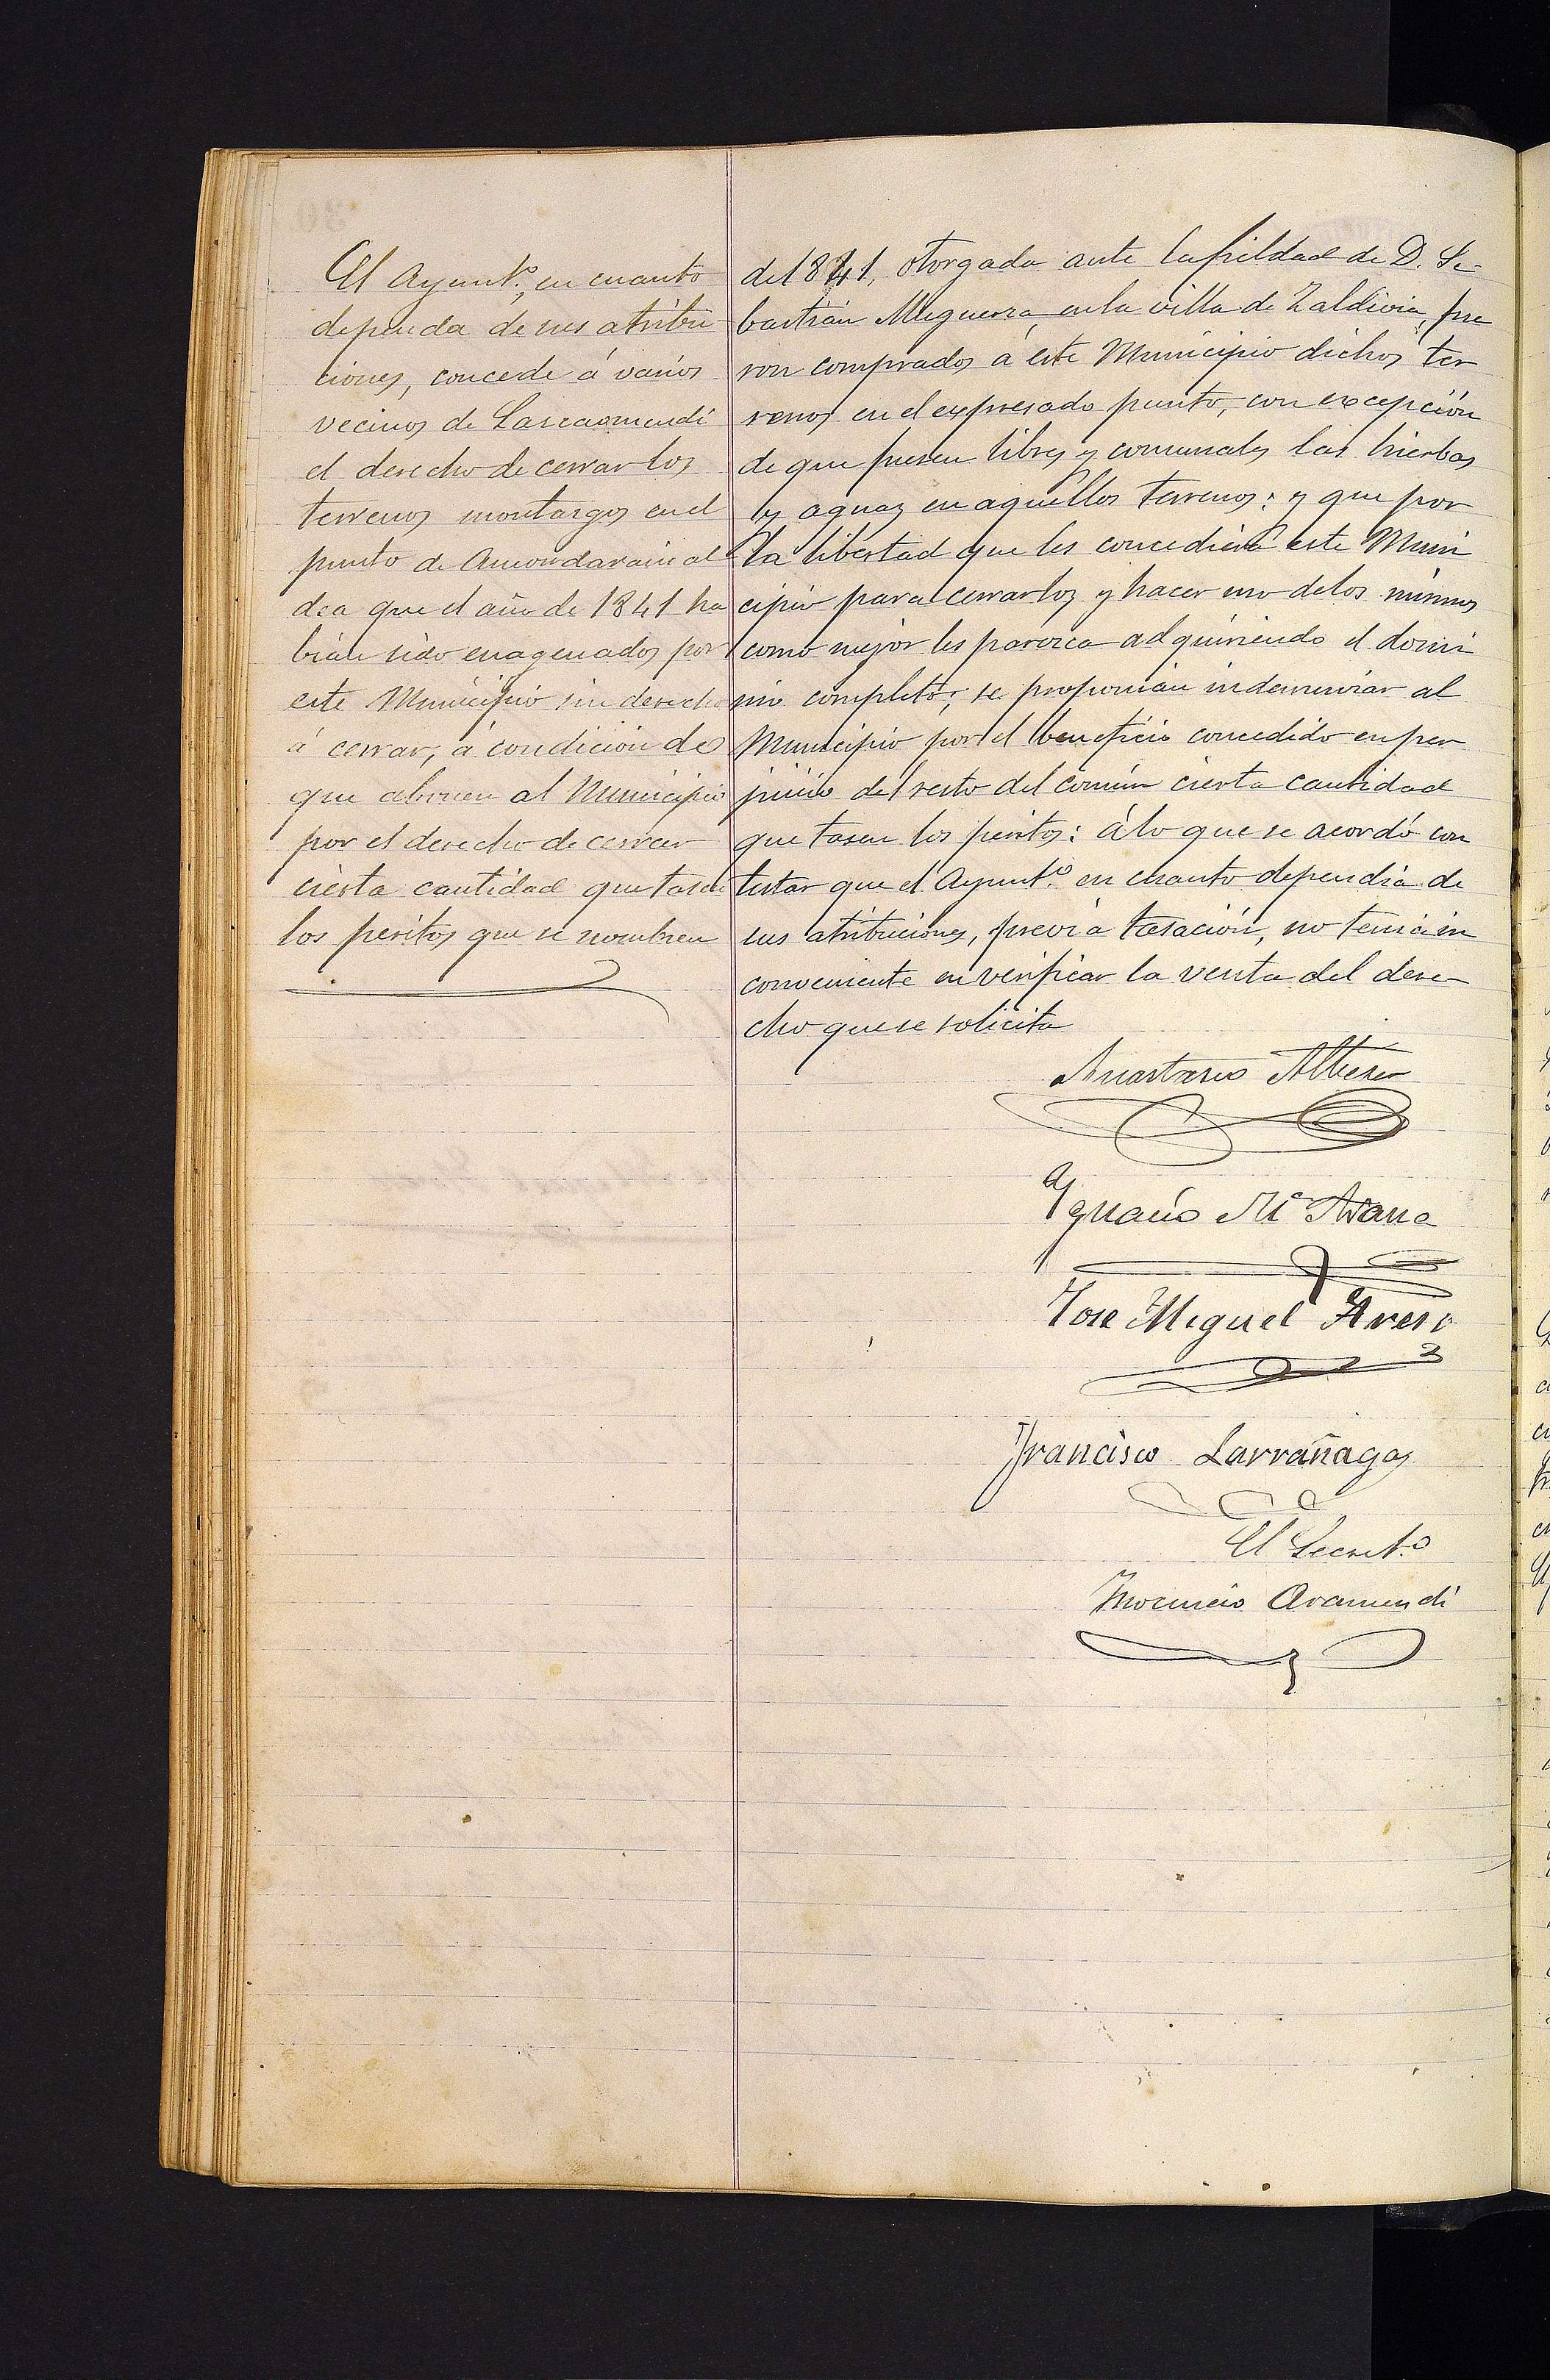 El Ayunt.º, en cuanto
dependa de sus atribu
ciones, concede á varios
vecinos de Lascaomendi
el derecho de cerrar los
terrenos montargos en el
punto de Amondarain al
dea que el año de 1841 ha
bían sido enagenados por
este Municipio sin derecho
á cerrar, á condicion de
que abonen al Municipio
por el derecho de cerrar
cierta cantidad que tasen
los peritos que se nombren
del 1841, otorgada ante la fieldad de D. Se
bastián en la villa de Zaldivia, fue
ron comprados á este Municipio dichos ter
renos en el expresado punto, con excepción
de que fuesen libres y comunales las hierbas
y aguas en aquellos terrenos: y que por
la libertad que les concediera este Muni
cipio para cerrarlos y hacer uso de los mismos
como mejor les parezca adquiriendo el domi
nio completo; se proponían indemnizar al
Municipio por el beneficio concedido en per
juicio del resto del común cierta cantidad
que tasen los peritos: á lo que se acordó con
testar que el Ayunt.º en cuanto dependía de
sus atribuciones, previa tasación, no tenia in
conveniente en verificar la venta del dere
cho que se solicita
Anastasio
Ygnacio Mª Arana
Jose Miguel Areso
Francisco Larrañaga
El Secret.º
Aramendi